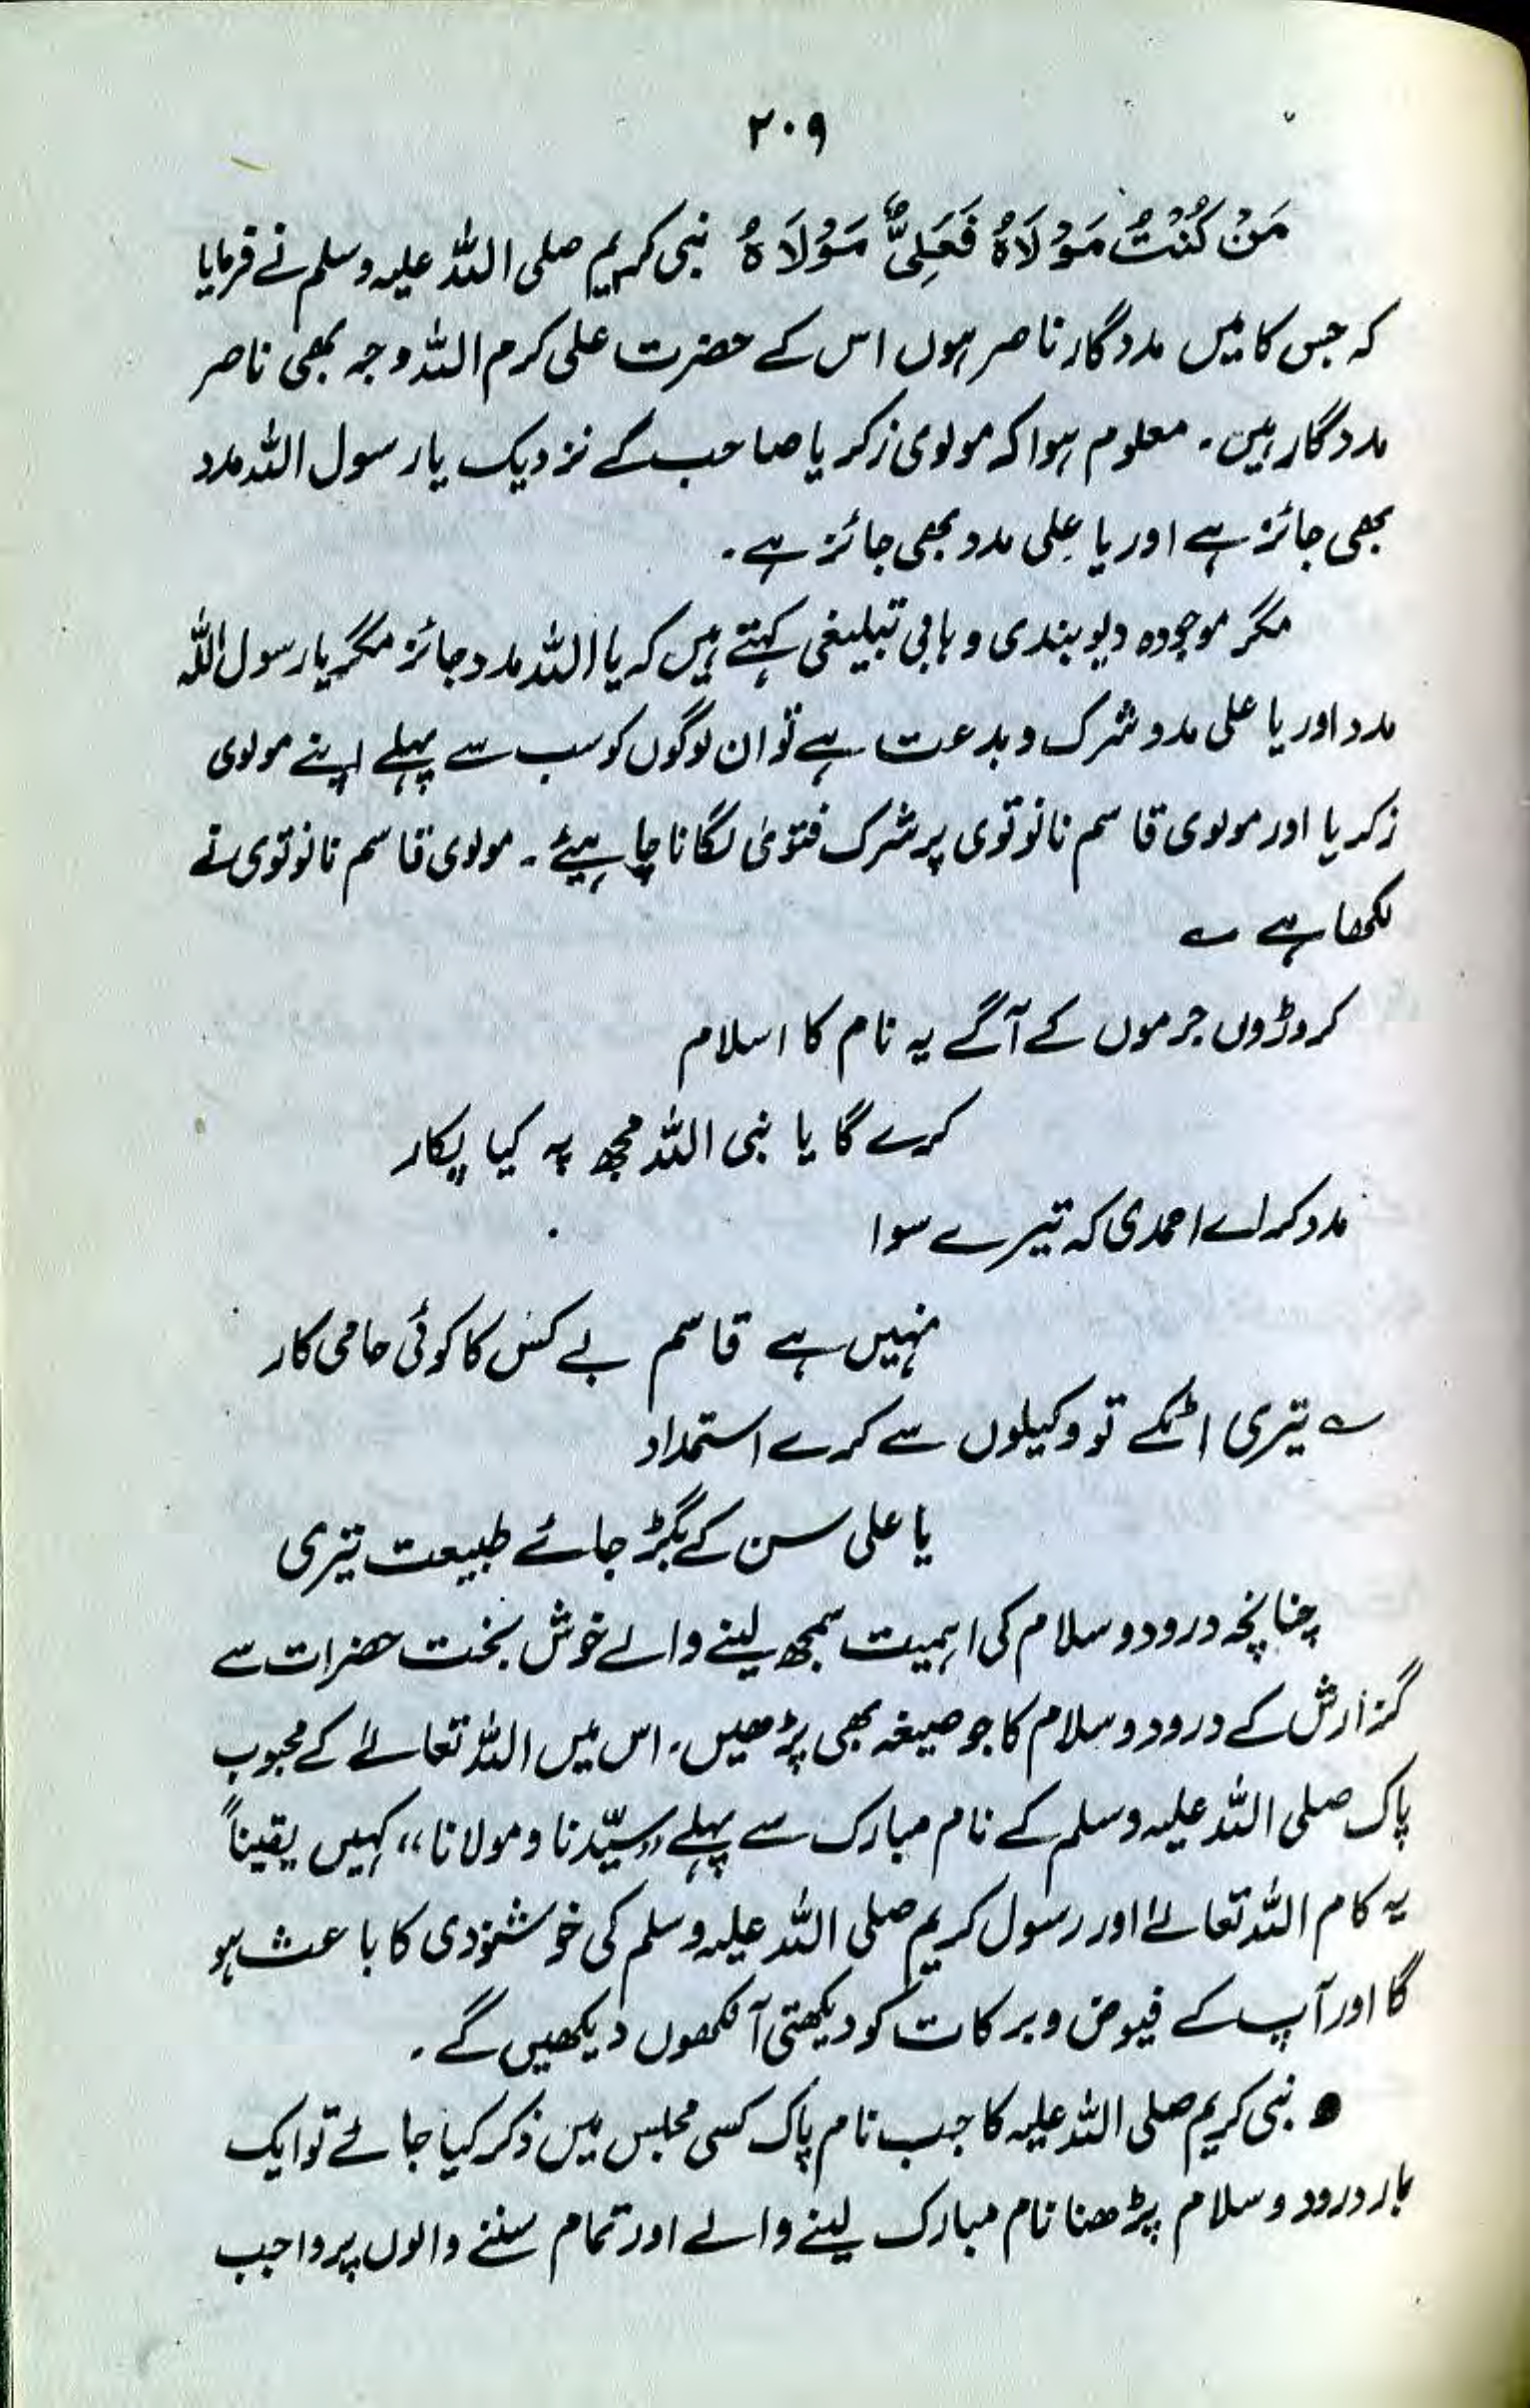 ۲۰۹
مَنْ كُنْتُ مَوْلَاهُ فَعَلِیٌّ مَوْلَاهُ نبی کریم صلی اللہ علیہ وسلم نے فرمایا
کہ جس کا میں مددگار ناصر ہوں اس کے حضرت علی کرم اللہ وجہ بھی ناصر
مددگار ہیں۔ معلوم ہوا کہ مولوی زکریا صاحب کے نزدیک یارسول اللہ مدد
بھی جائز ہے اور یا علی مدد بھی جائز ہے۔
مگر موجودہ دیوبندی وہابی تبلیغی کہتے ہیں کہ یا اللہ مدد جائز مگر یارسول اللہ
مدد اور یا علی مدد شرک و بدعت ہے تو ان لوگوں کو سب سے پہلے اپنے مولوی
زکریا اور مولوی قاسم نانوتوی پر شرک فتویٰ لگانا چاہیئے۔ مولوی قاسم نانوتوی نے
لکھا ہے ؎
کروڑوں جرموں کے آگے یہ نام کا اسلام
کرے گا یا نبی اللہ مجھ پہ کیا پکار
مدد کر اے احمدی کہ تیرے سوا
نہیں ہے قاسم بے کس کا کوئی حامی کار
؎ تیری اٹکے تو وکیلوں سے کرے استمداد
یا علی سن کے بگڑ جائے طبیعت تیری
چنانچہ درود و سلام کی اہمیت سمجھ لینے والے خوش بخت حضرات سے
گزارش کے درود و سلام کا جو صیغہ بھی پڑھیں۔ اس میں اللہ تعالےٰ کے محبوب
پاک صلی اللہ علیہ وسلم کے نام مبارک سے پہلے ,,سیّدنا و مولانا،، کہیں یقیناً
یہ کام اللہ تعالےٰ اور رسول کریم صلی اللہ علیہ وسلم کی خوشنودی کا باعث ہو
گا اور آپ کے فیوض و برکات کو دیکھتی آنکھوں دیکھیں گے۔
● نبی کریم صلی اللہ علیہ کا جب نام پاک کسی مجلس میں ذکر کیا جائے تو ایک
بار درود و سلام پڑھنا نام مبارک لینے والے اور تمام سننے والوں پر واجب